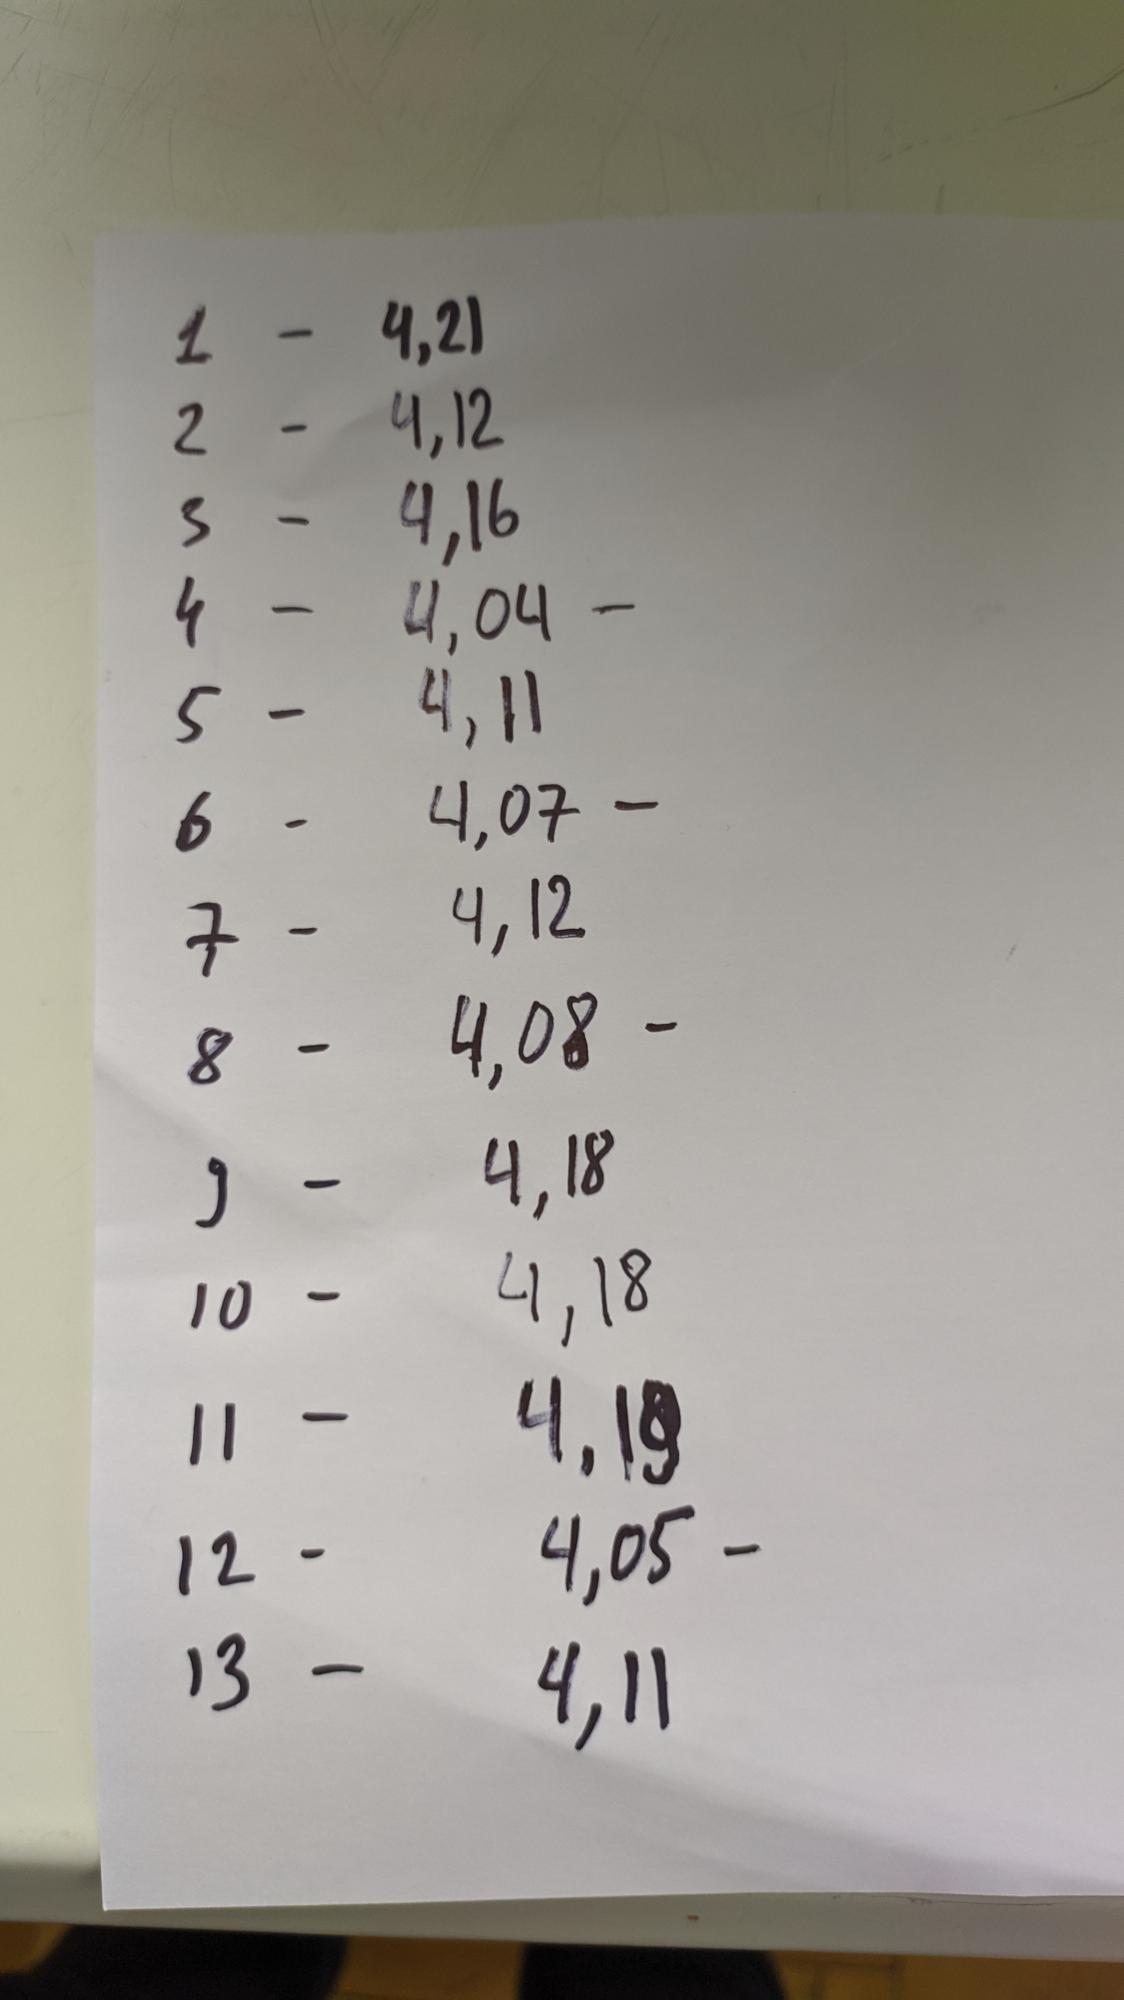 1 - 4,21
2 - 4,12
3 - 4,16
4 - 4,04 -
5 - 4,11
6 - 4,07 -
7 - 4,12
8 - 4,08 -
9 - 4,18
10 - 4,18
11 - 4,19
12 - 4,05 -
13 - 4,11